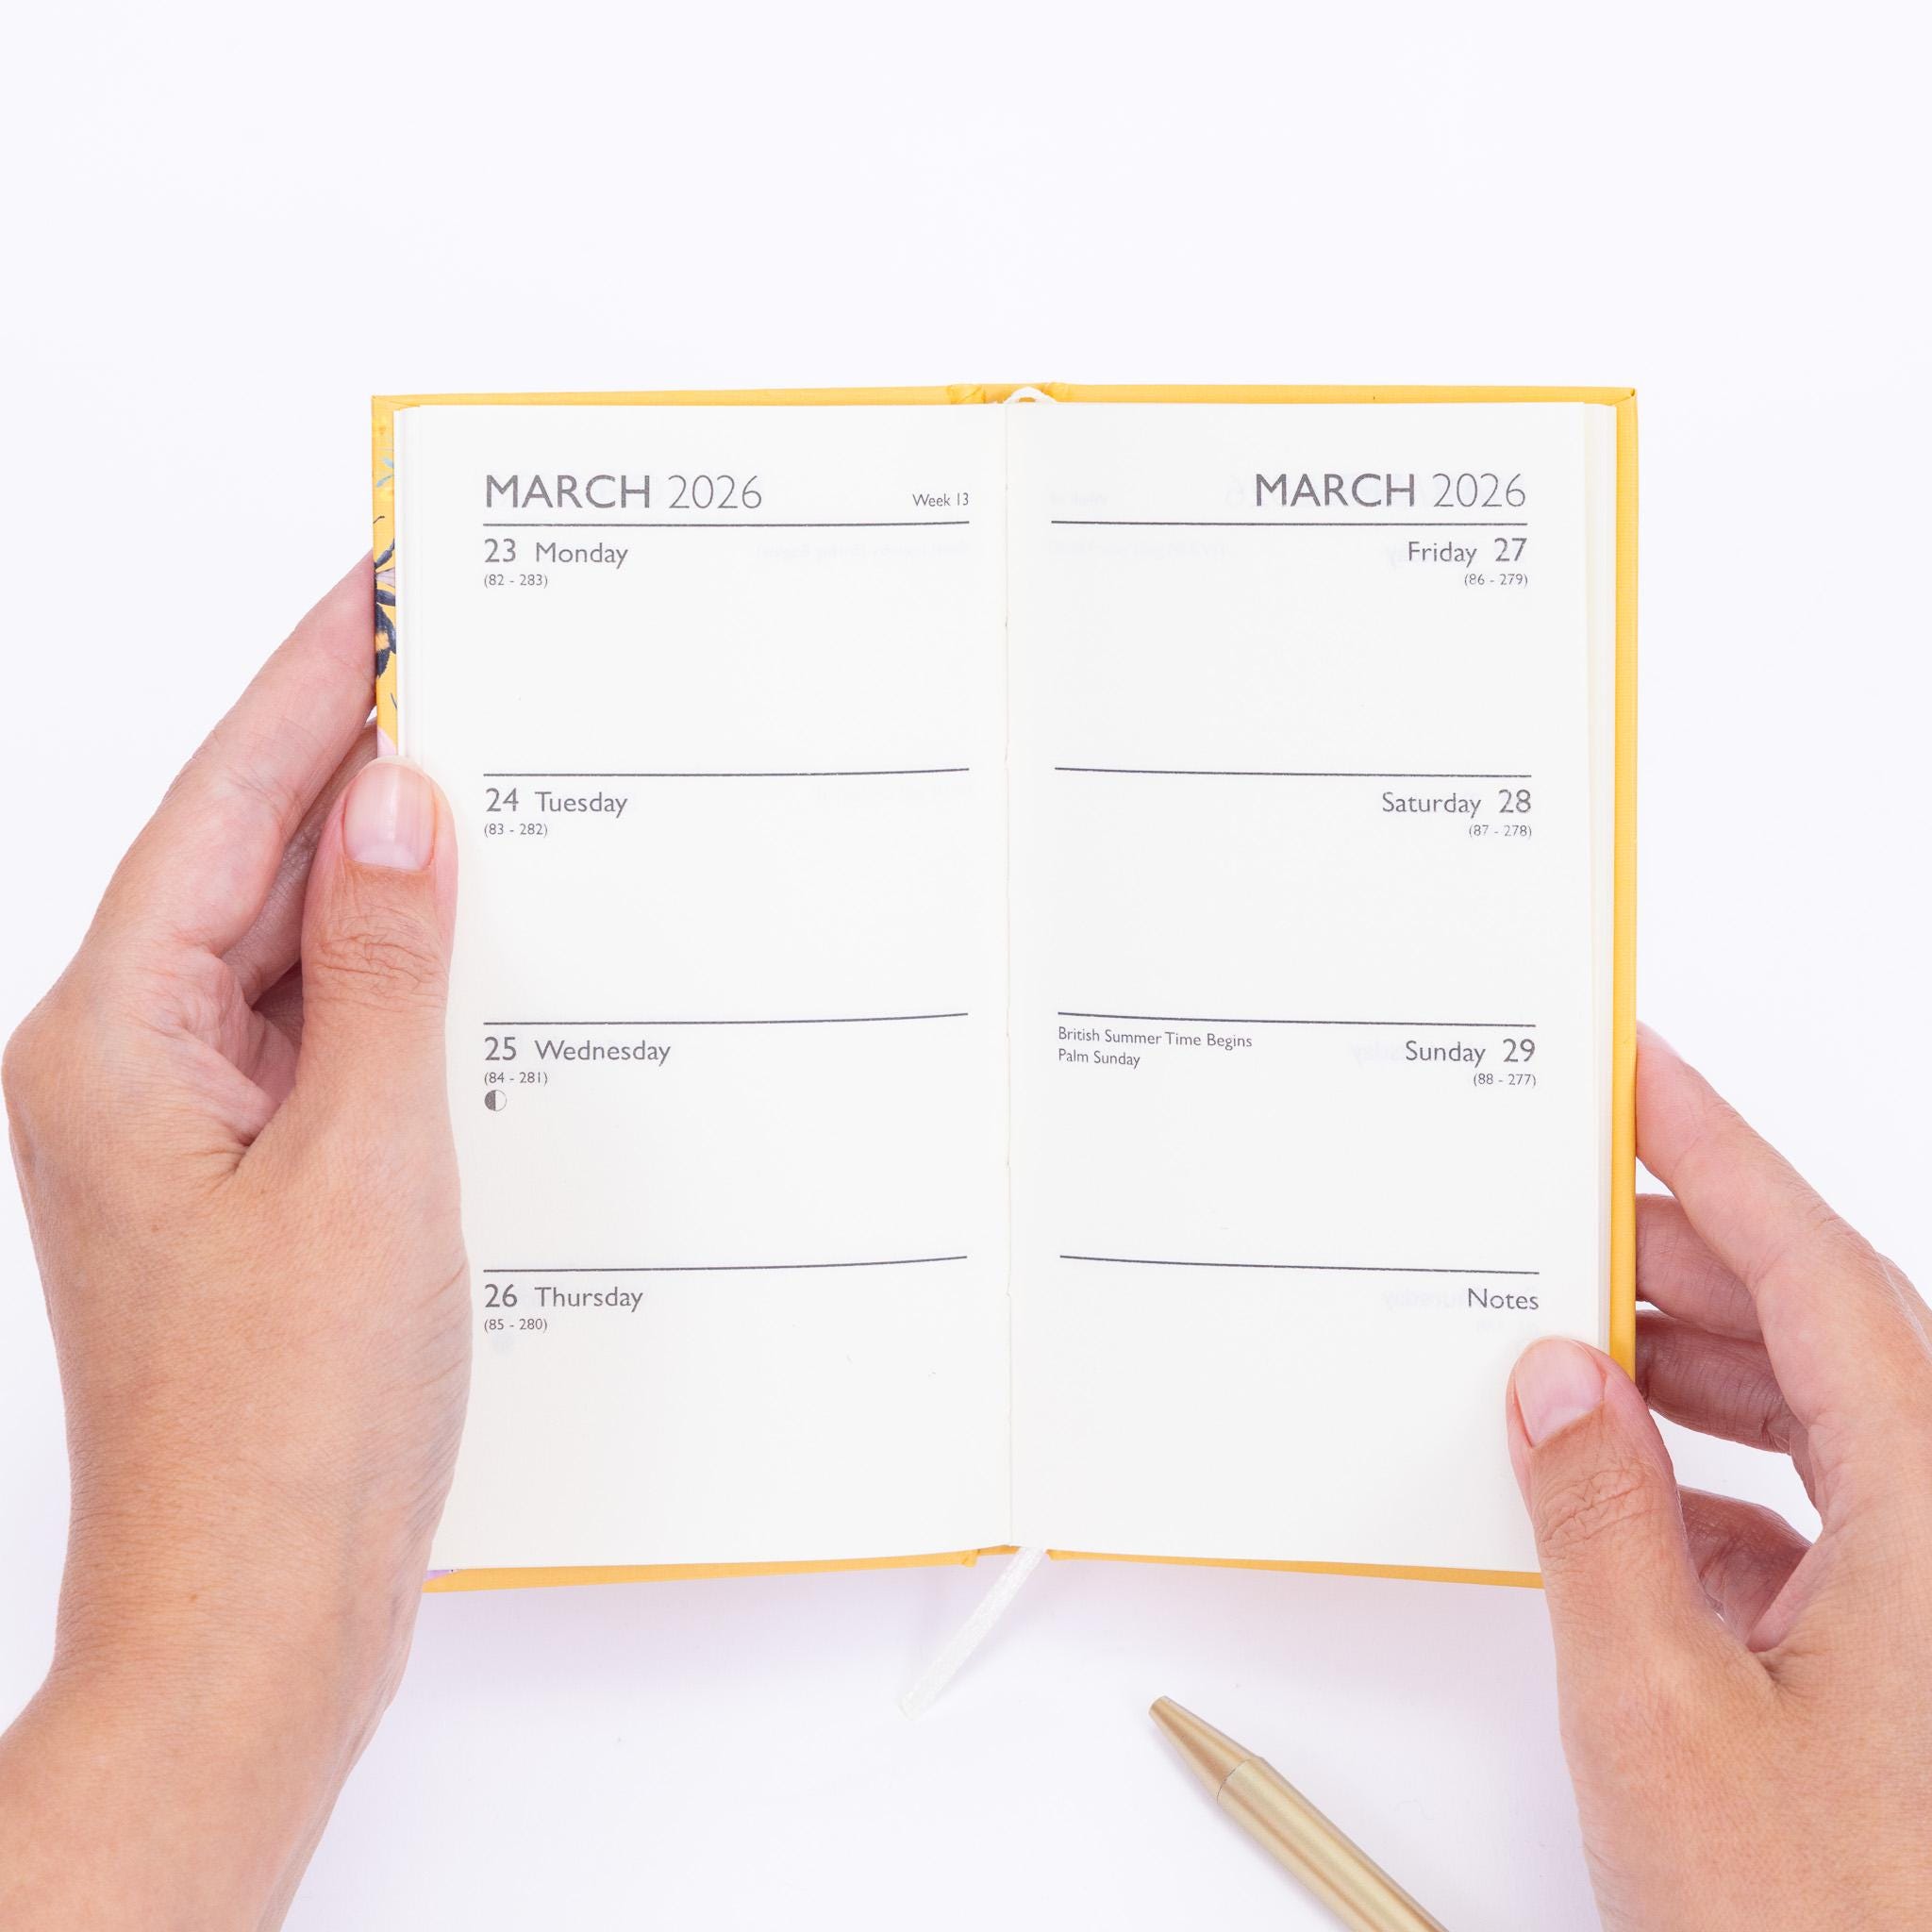 MARCH 2026 Week 13
23 Monday
(82 - 283)
24 Tuesday
(83 - 282)
25 Wednesday
(84 - 281)
26 Thursday
(85 - 280)
MARCH 2026
Friday 27
(86 - 279)
Saturday 28
(87 - 278)
British Summer Time Begins
Palm Sunday
Sunday 29
(88 - 277)
Notes